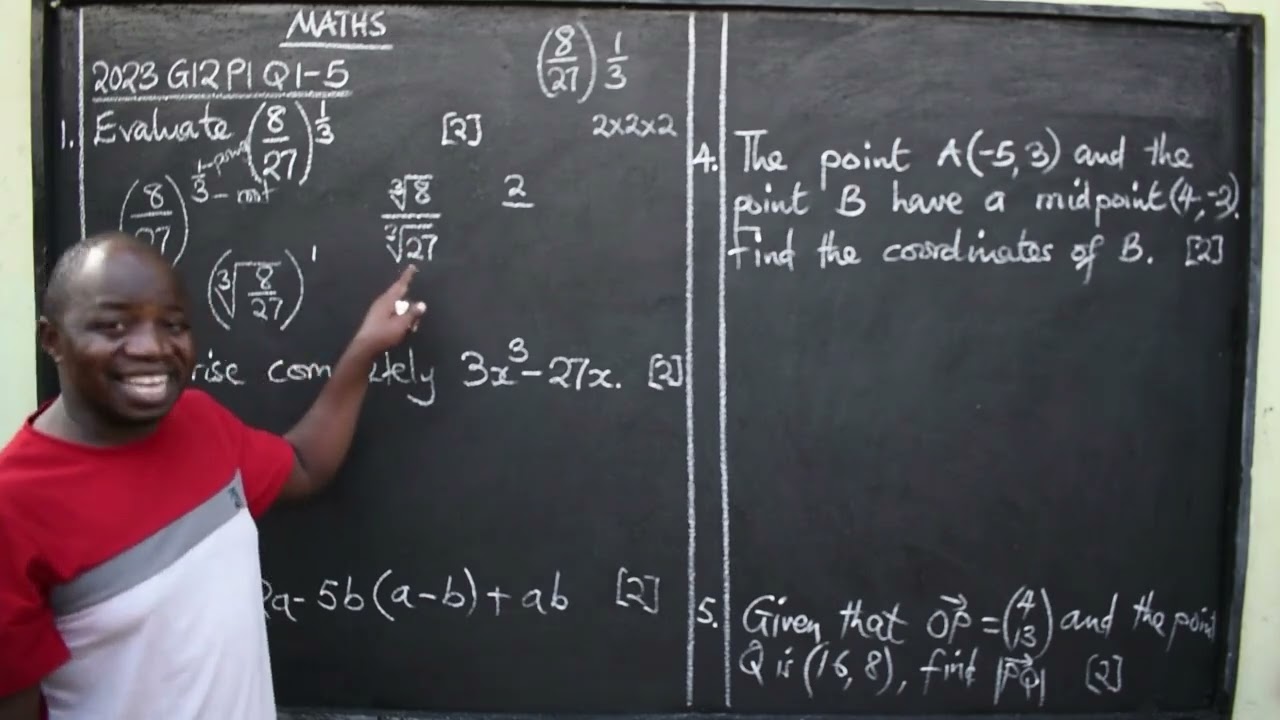 MATHS
2023 G12 P1 Q1-5
1. Evaluate (8/27)^1/3 [2]
(8/27)^1/3
2×2×2
(8/27)^1/3 1-power 3-root
∛8/∛27 2
(∛8/27)^1
rise completely 3x³-27x. [2]
2a-5b(a-b)+ab [2]
4. The point A(-5,3) and the
point B have a midpoint (4,-3).
Find the coordinates of B. [2]
5. Given that OP⃗ = (4 13) and the point
Q is (16,8), find |PQ⃗| [2]